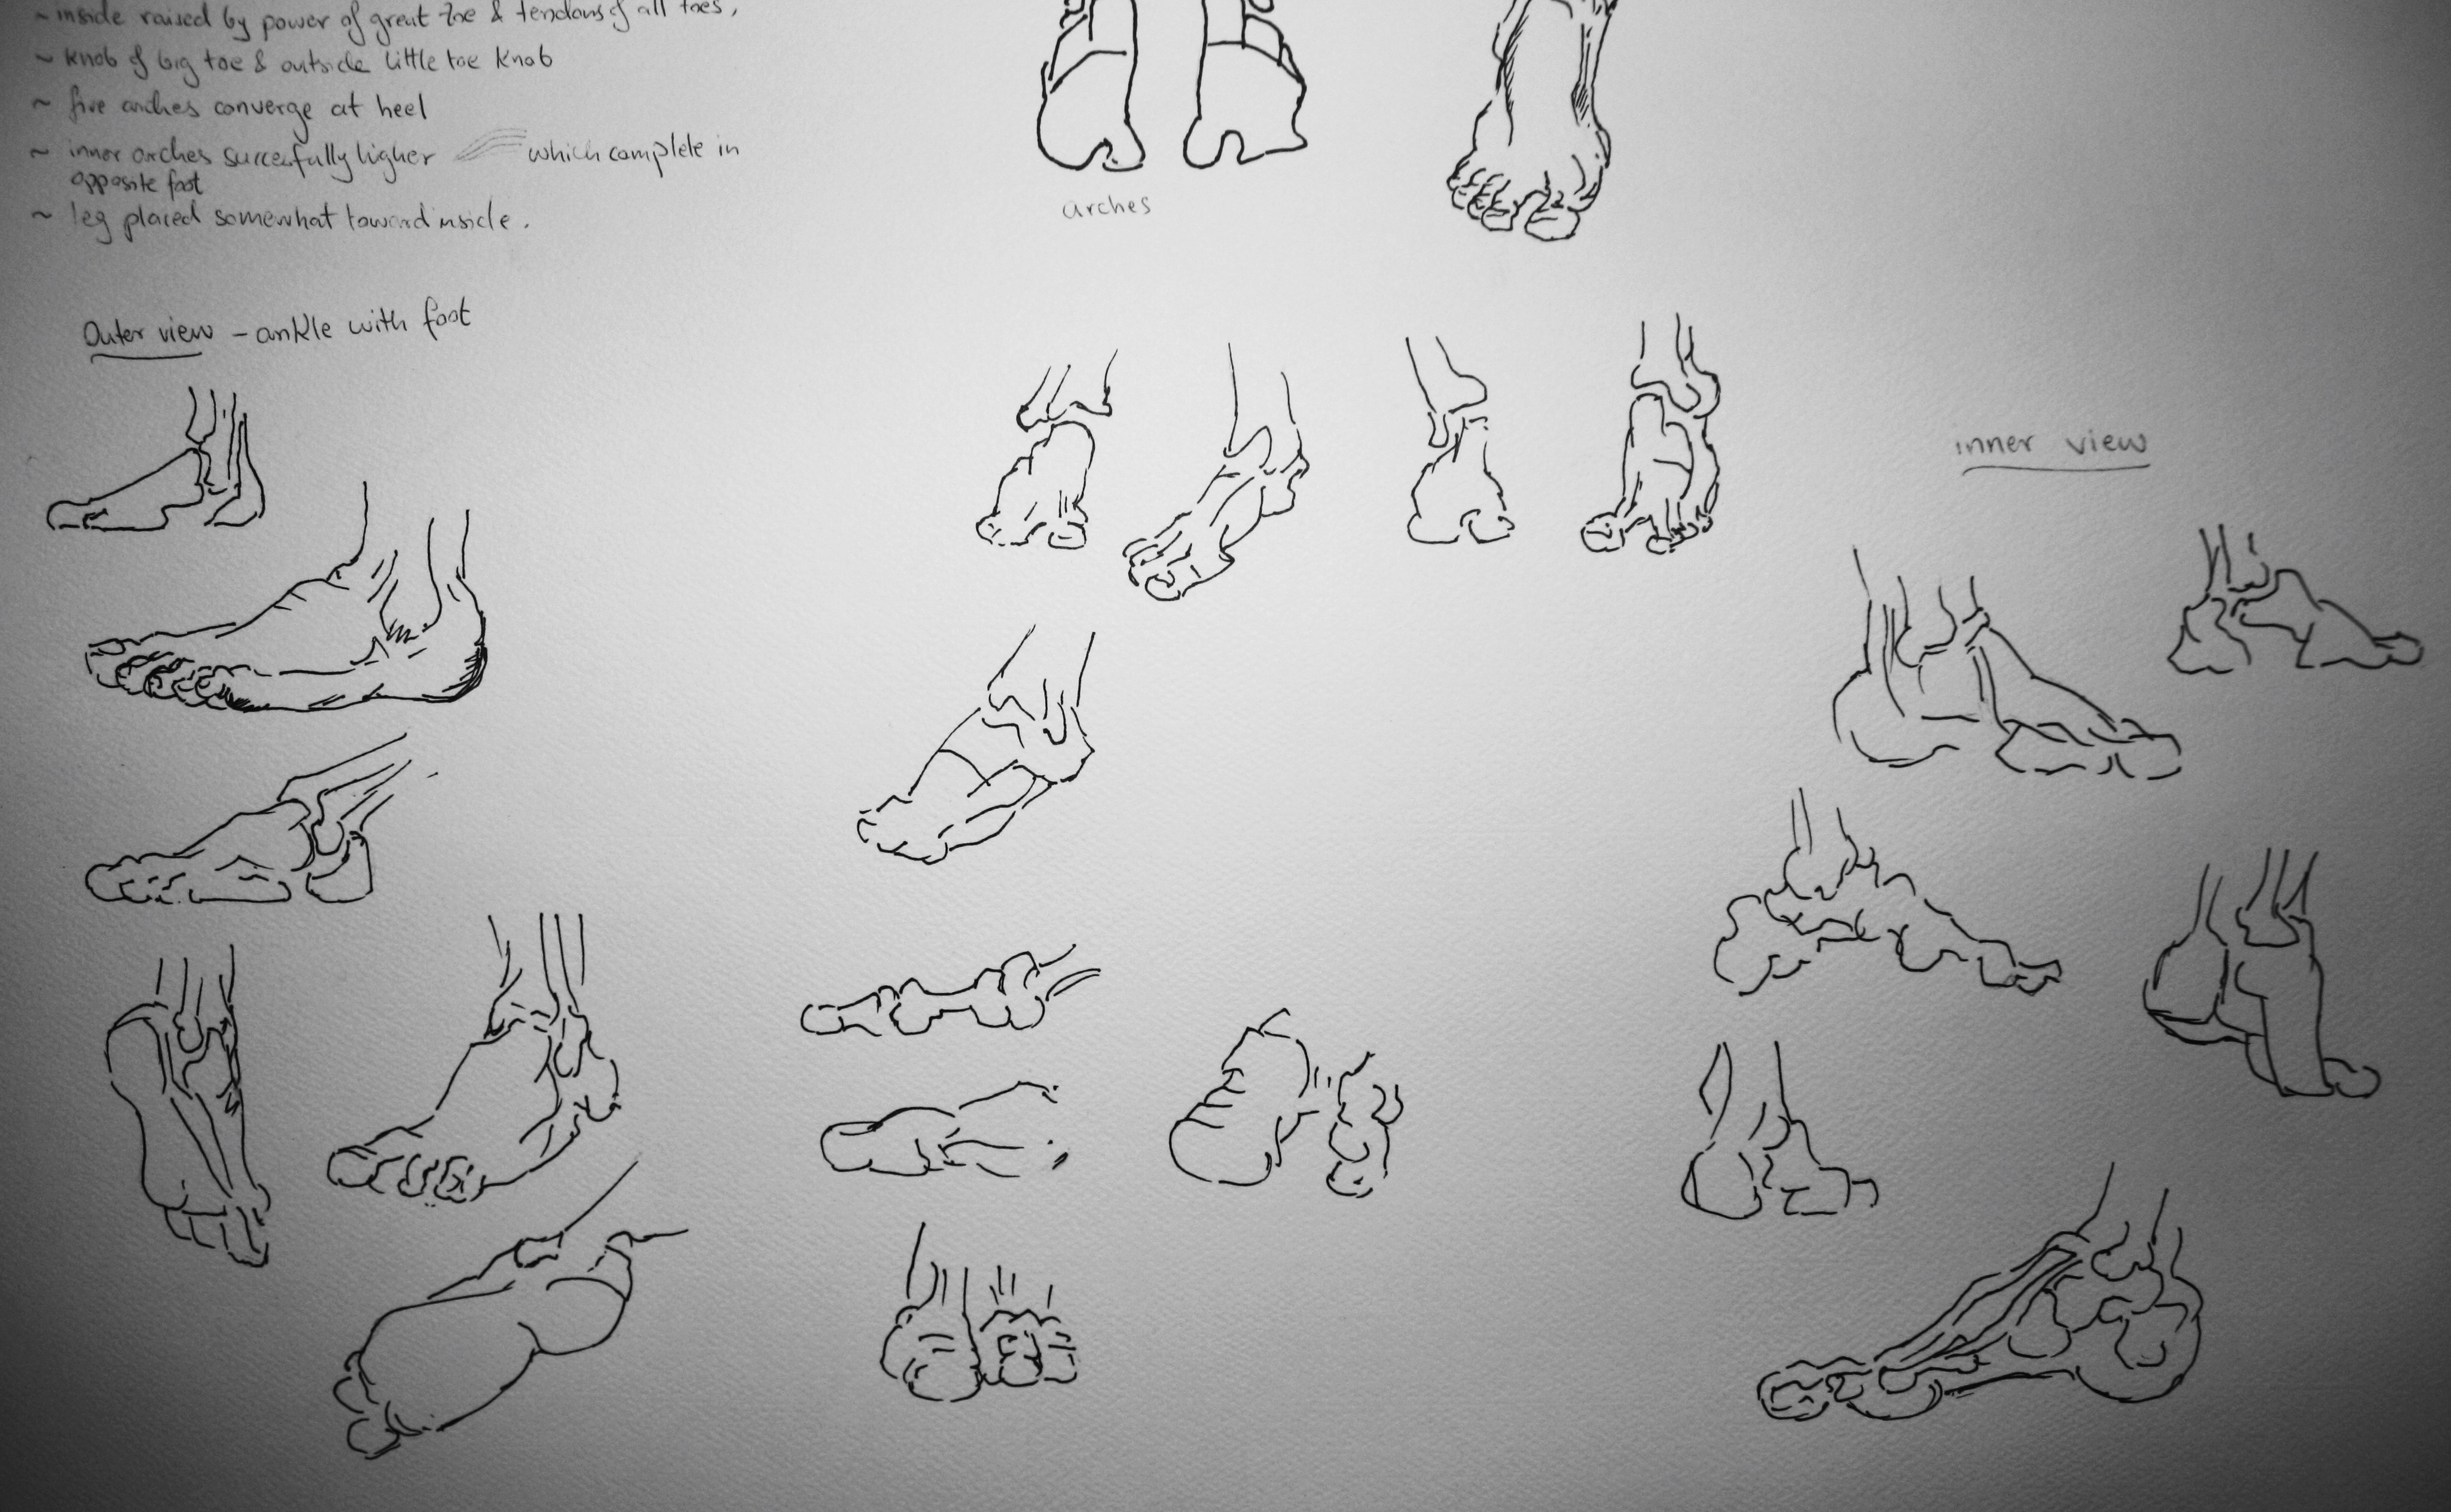 ~ inside raised by power of great toe & tendons of all toes,
~ knob of big toe & outside little toe knob
~ five arches converge at heel
~ inner arches succesfully higher which complete in
opposite foot
~ leg placed somewhat toward inside.
arches
Outer view - ankle with foot
inner view